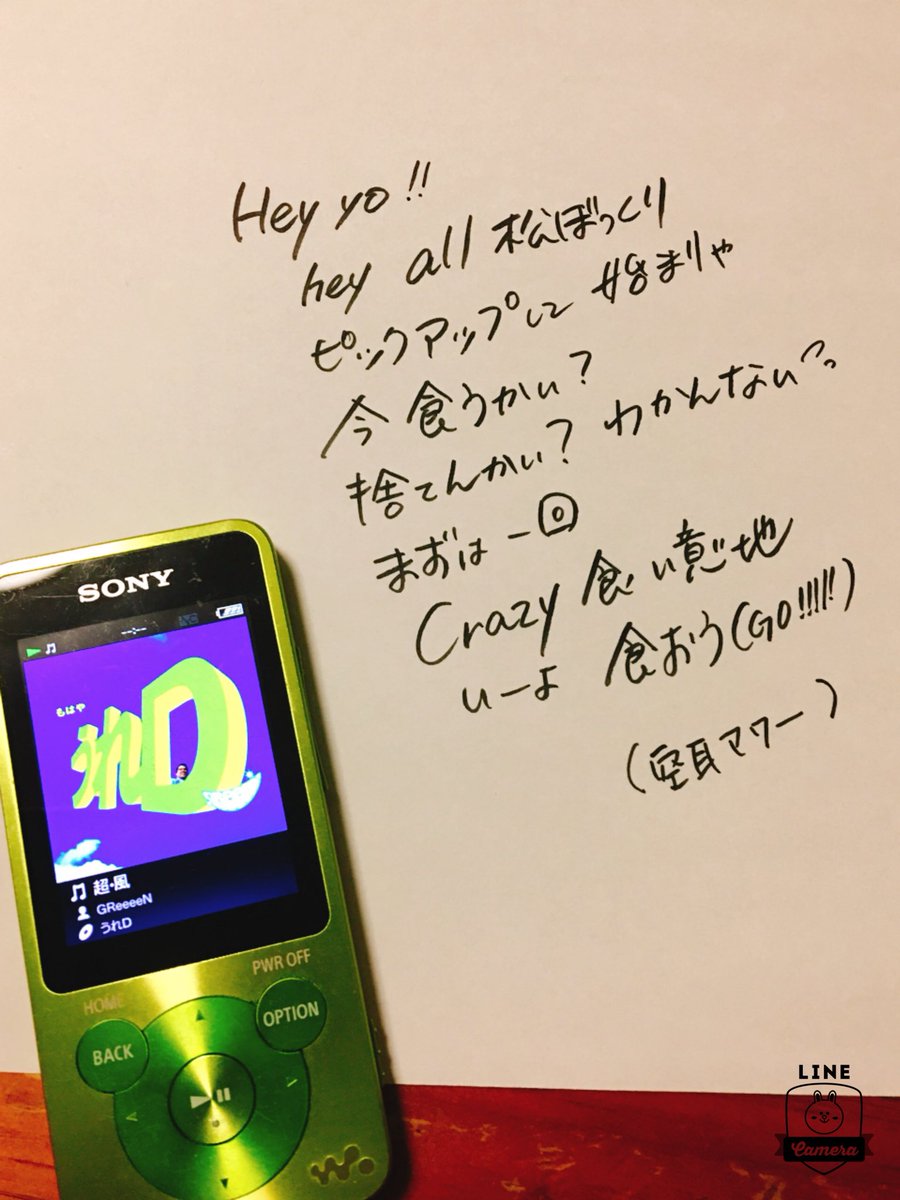 Hey yo!!
hey all 松ぼっくり
ピックアップして 始まりゃ
今 食うかい?
捨てんかい? わかんないっ
まずは一回
Crazy 食い意地
いーよ 食おう(GO!!!!!)
(空耳アワー)
SONY
もはや
うれD
超・風
GReeeeN
うれD
PWR OFF
HOME
OPTION
BACK
LINE
Camera